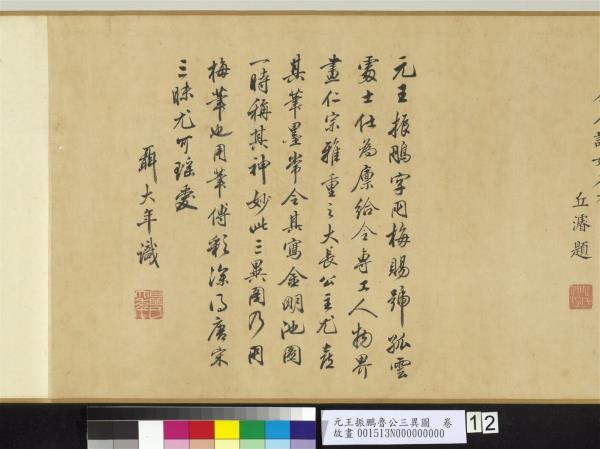 丘濬題
元王振鵬字朋梅賜號孤雲
處士仕為廩給令專工人物界
畫仁宗雅重之大長公主尤喜
其筆墨常令其寫金明池圖
一時稱其神妙此三異圖乃朋
梅筆也用筆傅彩深得唐宋
三昧尤可瑤愛
聶大年識
元王振鵬魯公三異圖 卷
故畫 001513N000000000
12